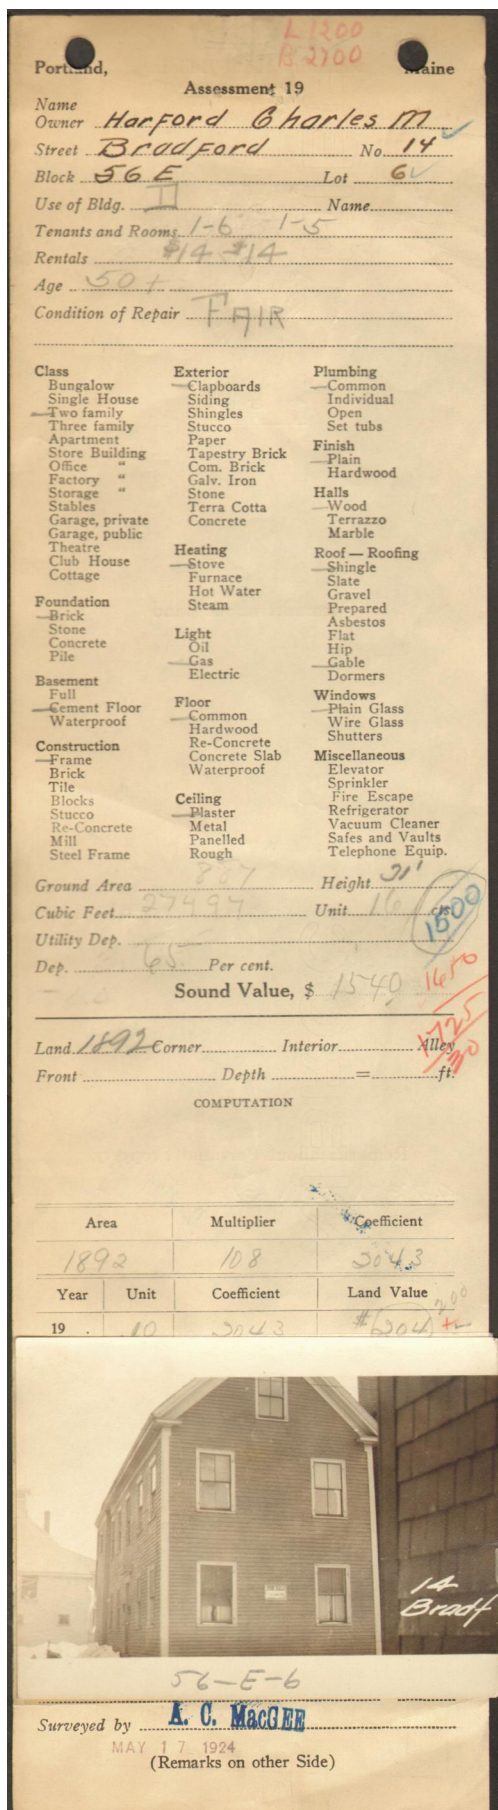 L 1200
B 2700
Portland, Maine
Assessment 19
Name
Owner Harford Charles M
Street Bradford No. 14
Block 56 E Lot 6
Use of Bldg. II Name
Tenants and Rooms 1-6 1-5
Rentals $14 $14
Age 50+
Condition of Repair FAIR
Class
Bungalow
Single House
Two family
Three family
Apartment
Store Building
Office "
Factory "
Storage "
Stables
Garage, private
Garage, public
Theatre
Club House
Cottage
Foundation
Brick
Stone
Concrete
Pile
Basement
Full
Cement Floor
Waterproof
Construction
Frame
Brick
Tile
Blocks
Stucco
Re-Concrete
Mill
Steel Frame
Exterior
Clapboards
Siding
Shingles
Stucco
Paper
Tapestry Brick
Com. Brick
Galv. Iron
Stone
Terra Cotta
Concrete
Heating
Stove
Furnace
Hot Water
Steam
Light
Oil
Gas
Electric
Floor
Common
Hardwood
Re-Concrete
Concrete Slab
Waterproof
Ceiling
Plaster
Metal
Panelled
Rough
Plumbing
Common
Individual
Open
Set tubs
Finish
Plain
Hardwood
Halls
Wood
Terrazzo
Marble
Roof — Roofing
Shingle
Slate
Gravel
Prepared
Asbestos
Flat
Hip
Gable
Dormers
Windows
Plain Glass
Wire Glass
Shutters
Miscellaneous
Elevator
Sprinkler
Fire Escape
Refrigerator
Vacuum Cleaner
Safes and Vaults
Telephone Equip.
Ground Area 887 Height 31'
Cubic Feet 27497 Unit 16 cts.
1500
Utility Dep.
Dep. 65 Per cent.
Sound Value, $ 1540
1650
1725
30
Land 1892 Corner Interior Alley
Front Depth = ft.
COMPUTATION
Area Multiplier Coefficient
1892 108 2043
Year Unit Coefficient Land Value
200
19 . 10 2043 $204
14
Bradf
56-E-6
Surveyed by A. C. MacGEE
MAY 17 1924
(Remarks on other Side)